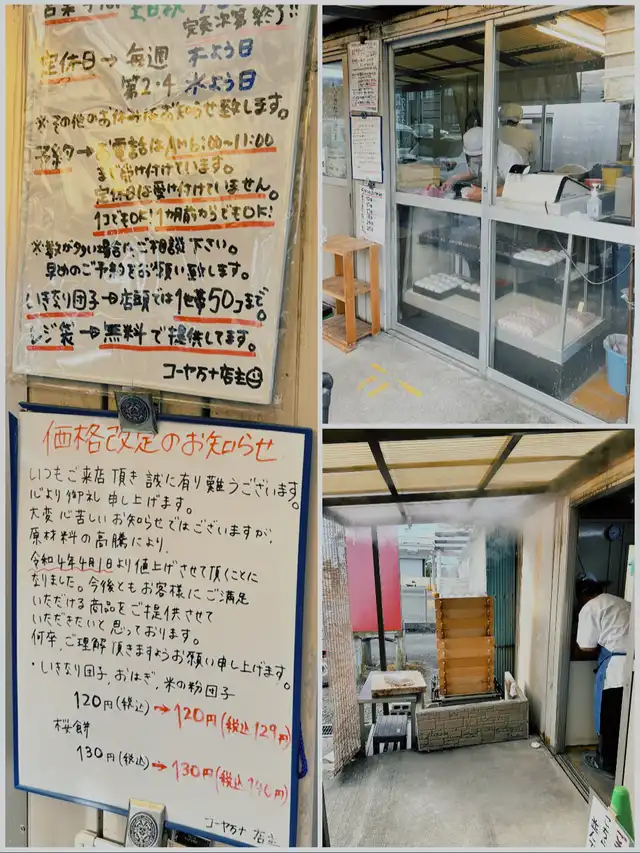 定休日→毎週 木よう日
第2・4 水よう日
※その他のお休みはお知らせ致します。
予約→お電話はAM6:00〜11:00
まで受け付けています。
定休日は受け付けていません。
1コでもOK!1ヵ月前からでもOK!
※数が多い場合はご相談下さい。
早めのご予約をお願い致します。
いきなり団子→店頭では1世帯50コまで。
レジ袋→無料で提供してます。
コーヤ万十店主
価格改定のお知らせ
いつもご来店頂き誠に有り難うございます。
心より御礼申し上げます。
大変心苦しいお知らせではございますが、
原材料の高騰により、
令和4年4月1日より値上げさせて頂くことに
なりました。今後ともお客様にご満足
いただける商品をご提供させて
いただきたいと思っております。
何卒、ご理解頂きますようお願い申し上げます。
・いきなり団子、おはぎ、米の粉団子
120円(税込)→120円(税込129円)
桜餅
130円(税込)→130円(税込140円)
コーヤ万十 店主